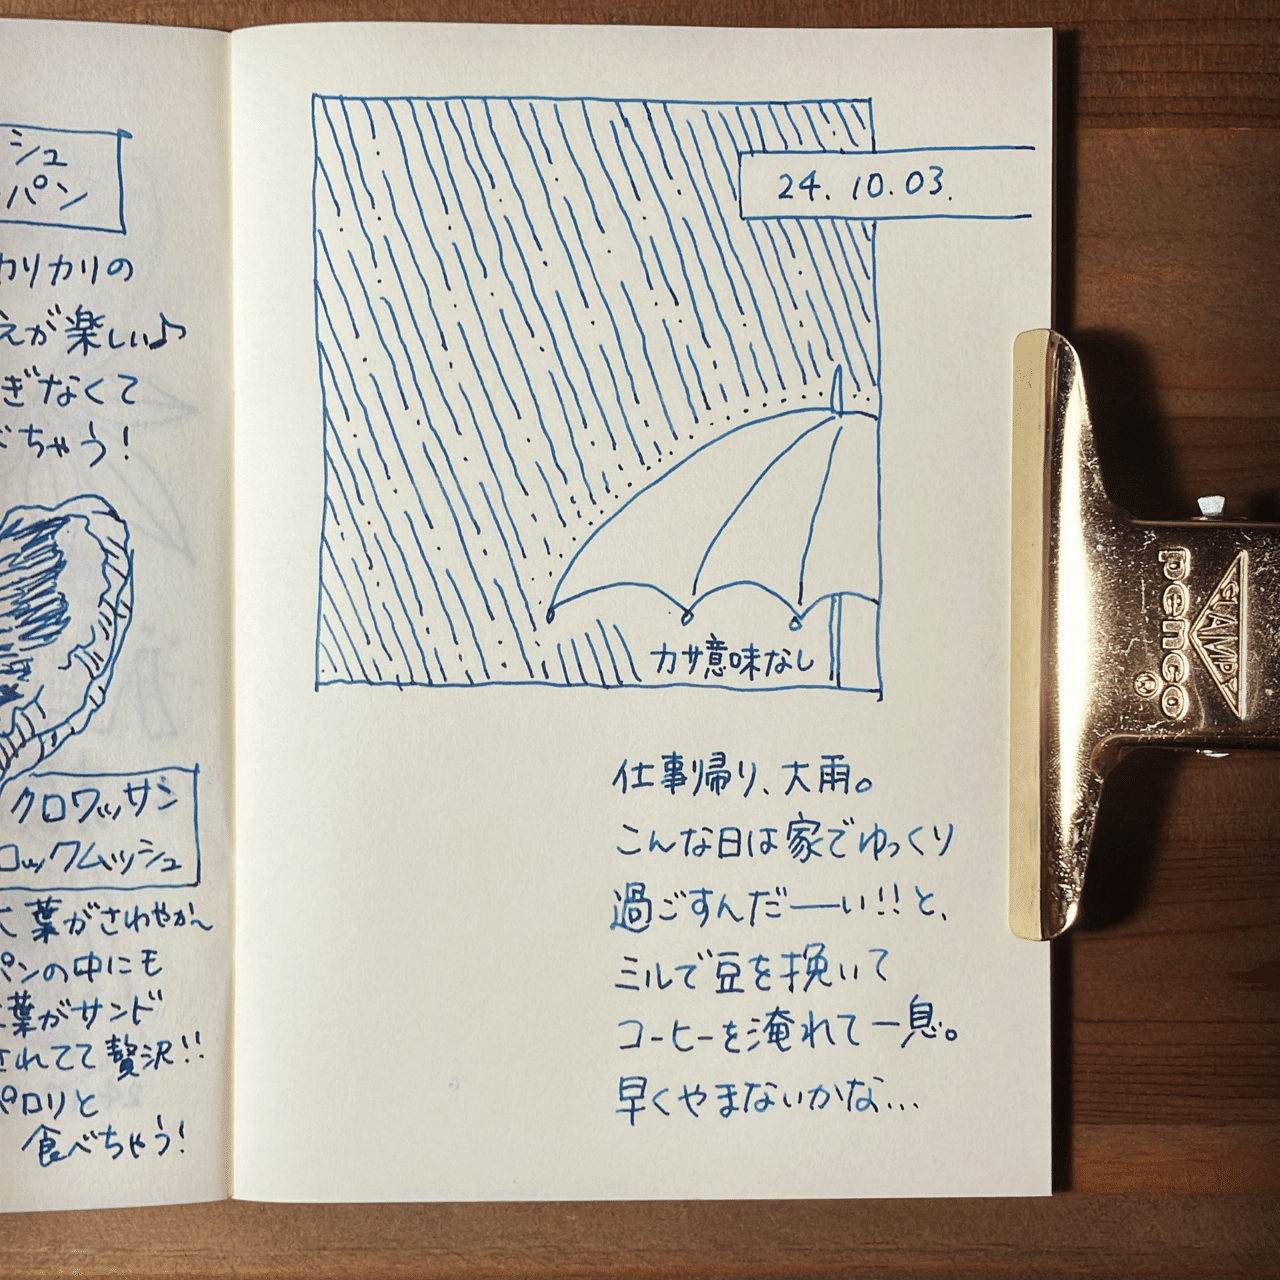 シュ
パン
カリカリの
えが楽しい♪
ぎなくて
べちゃう！
クロワッサン
ロックムッシュ
大葉がさわやか〜
パンの中にも
葉がサンド
されてて贅沢!!
ペロリと
食べちゃう！
24. 10. 03.
カサ意味なし
仕事帰り、大雨。
こんな日は家でゆっくり
過ごすんだーーい!!と、
ミルで豆を挽いて
コーヒーを淹れて一息。
早くやまないかな...
CLAMPS
penco